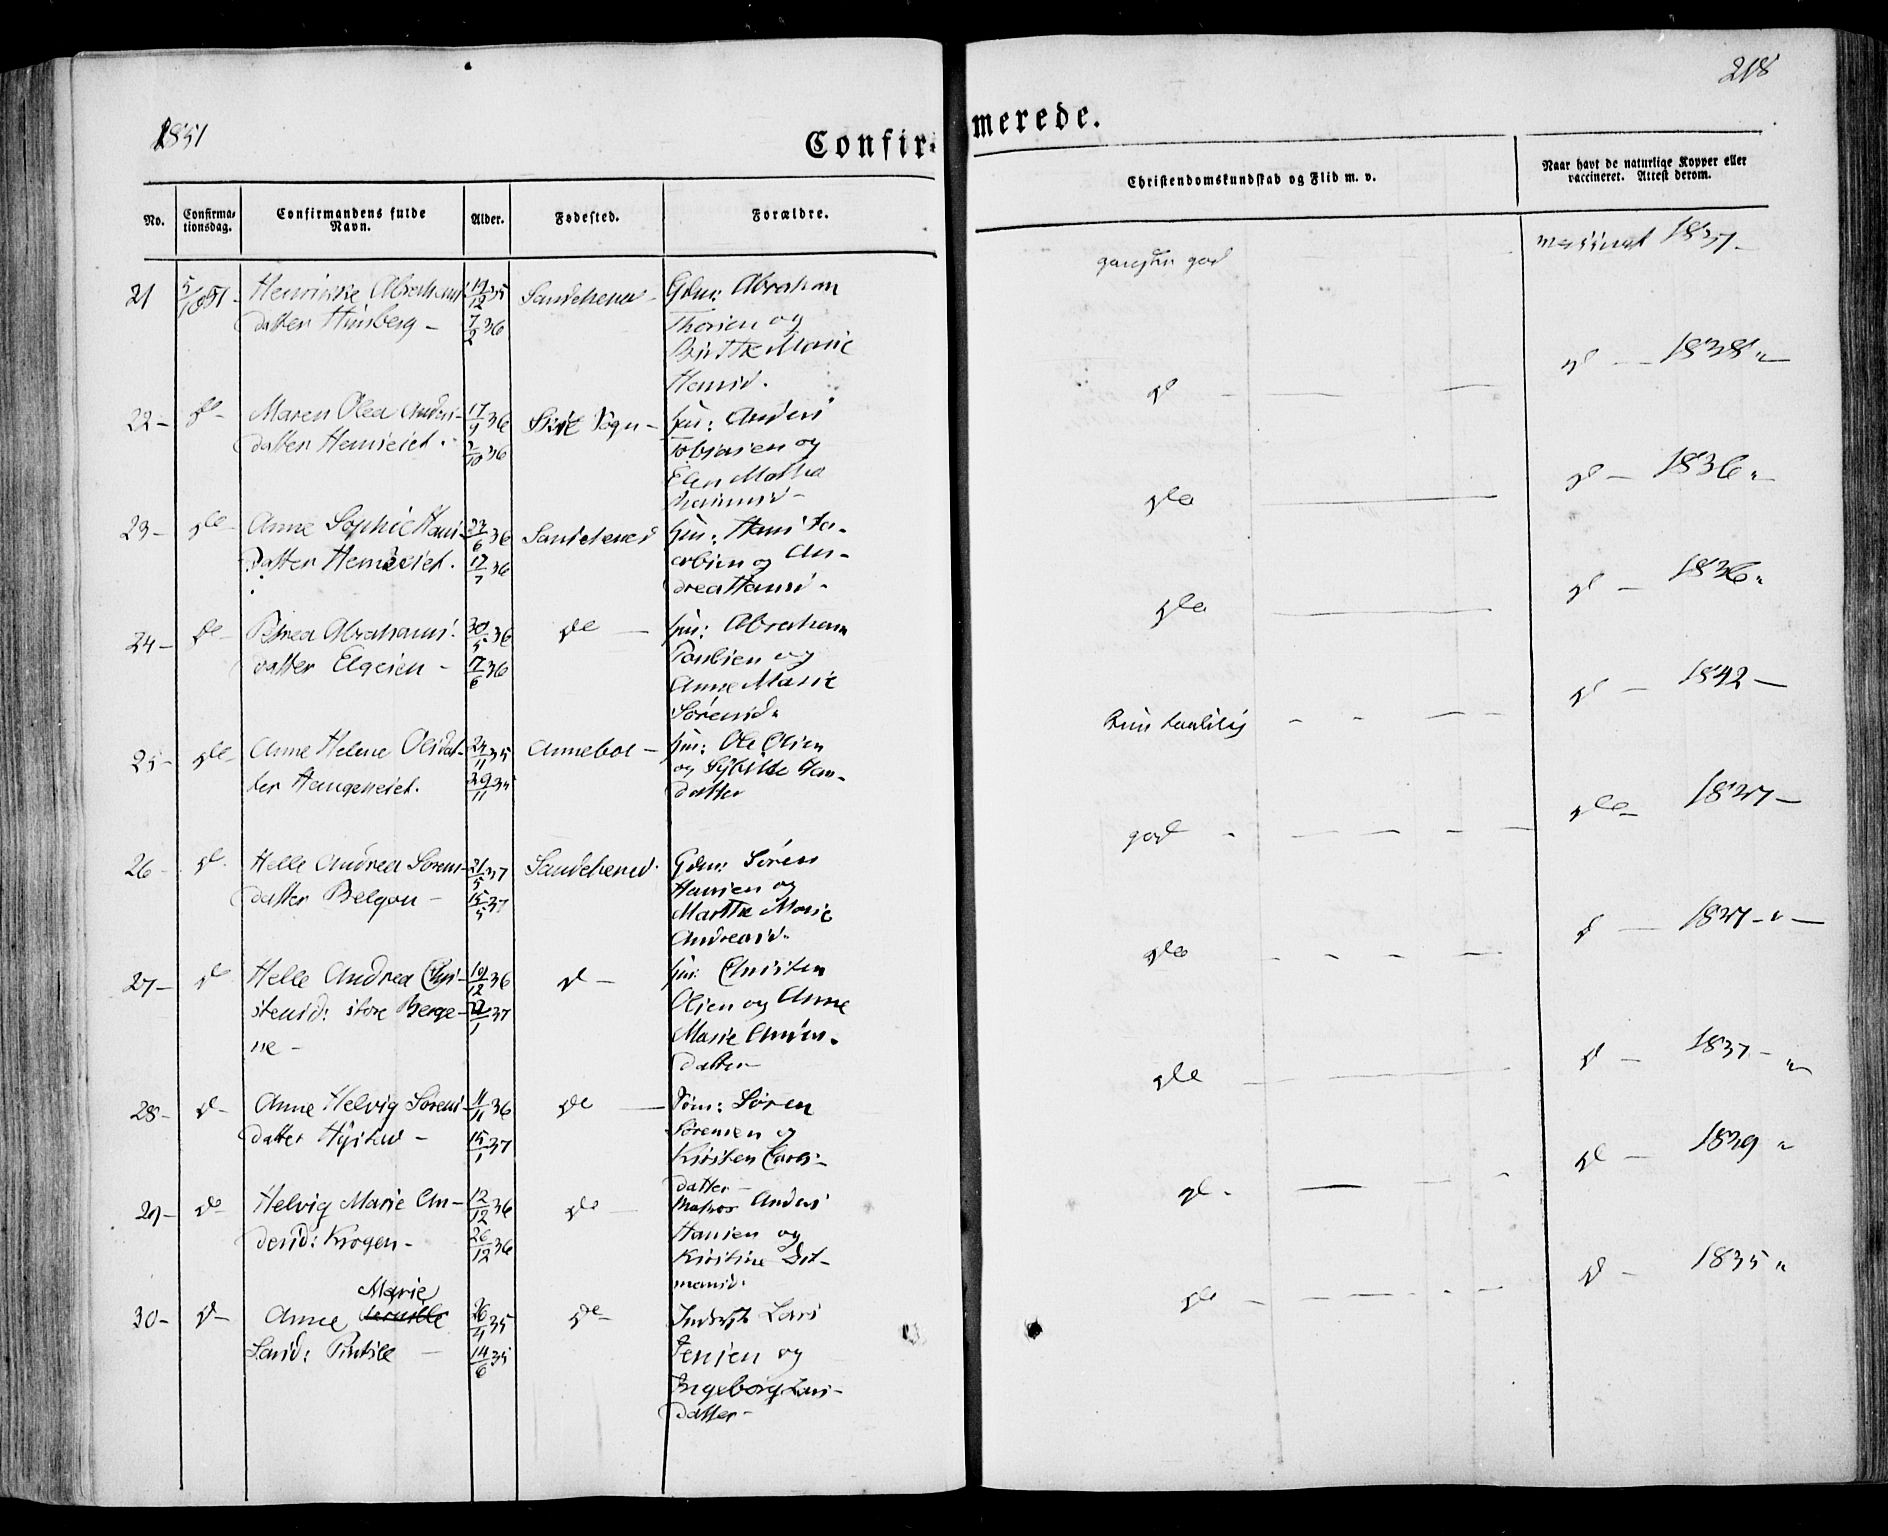 1851
218
Confirmerede.
No.
Confirmationsdag.
Confirmandens fulde Navn.
Alder.
Fødested.
Forældre.
Christendomskundskab og Flid m. v.
Naar havt de naturlige Kopper eller
vaccineret. Attest derom.
21 5/10 51 Henrikke Abraham- 19/12 35 Sandehered Gdm: Abraham
datter Hinberg - 7/2 36 Thorsen og
Birthe Marie
Hansd.
ganske god
vaccineret 1837 -
22 - do - Maren Olea Anders- 17/9 36 Sogn - hm: Anders
datter 36 Tobiasen og
Elen Mathea
do
do - 1838 "
23 - do - Anne Sophie Hans- 23/6 36 Sandehered hm: Hans
datter 17/7 36 og An-
drea Hansd -
do
do - 1836 "
24 - do - Petrea Abrahams- 30/5 36 do - hm: Abraham
datter 17/6 36 Paulsen og
Anne Marie
Sørensd.
do
do - 1836 "
25 - do - Anne Helene Olsdat- 24/11 35 Anneboe - hm: Ole Olsen
ter Haugeneiet. 29/11 35 og Han-
datter
do - 1842 -
26 - do. Helle Andrea Sørens- 21/5 37 Sandehered Gdm: Søren
datter Belgon - 15/5 37 Hansen og
Marthe Marie
Andreasd.
god
do - 1837 -
27 - do Helle Andrea Chri- 19/12 36 do - hm: Christen
stensd: store Berge- 22/1 37 Olsen og Anne
ne - Marie Anders-
datter -
do
do - 1837 - " -
28 - do - Anne Helvig Sørens- 11/11 36 do - Søren
datter - 15/1 37 Sørensen og
Kirsten Lars-
datter -
do
do - 1837 - "
29 - do - Helvig Marie An- 12/12 36 do - Matros Anders
dersd: Krogen - 26/12 36 Hansen og
Kirstine Dit-
mansd.
do -
do - 1839 "
Marie
30 - do - Anne 26/4 35 do - Inderst Lars
Larsd: - 14/6 35 Jensen og
Ingeborg Lars-
datter -
do -
do - 1835 "